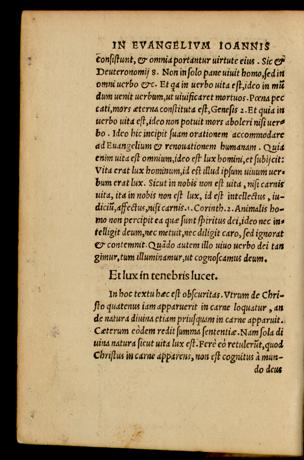 IN EVANGELIVM IOANNIS
consistunt, & omnia portantur virtute eius. Sic &
Deuteronomij 8. Non in solo pane viuit homo, sed in
omni verbo &c. Et qa in verbo vita est, ideo in mū
dum venit verbum, ut viuificaret mortuos. Pœna pec
cati, mors æterna constituta est, Genesis 2. Et quia in
verbo vita est, ideo non potuit mors aboleri nisi ver=
bo. Ideo hic incipit suam orationem accommodare
ad Euangelium & renouationem humanam. Quia
enim vita est omnium, ideo est lux homini, et subijcit:
Vita erat lux hominum, id est illud ipsum viuum ver=
bum erat lux. Sicut in nobis non est vita, nisi carnis
vita, ita in nobis non est lux, id est intellectus, iu=
diciū, affectus, nisi carnis. 1. Corinth. 2. Animalis ho=
mo non percipit ea quæ sunt spiritus dei, ideo nec in=
telligit deum, nec metuit, nec diligit caro, sed ignorat
& contemnit. Quādo autem illo viuo verbo dei tan
gimur, tum illuminamur, ut cognoscamus deum.
Et lux in tenebris lucet.
In hoc textu hæc est obscuritas. Vtrum de Chri=
sto quatenus iam apparuerit in carne loquatur, an
de natura diuina etiam priusquam in carne apparuit.
Cæterum eòdem redit summa sententiæ. Nam sola di
uina natura sicut vita lux est. Ferè eò retulerūt, quod
Christus in carne apparens, non est cognitus à mun=
do deus